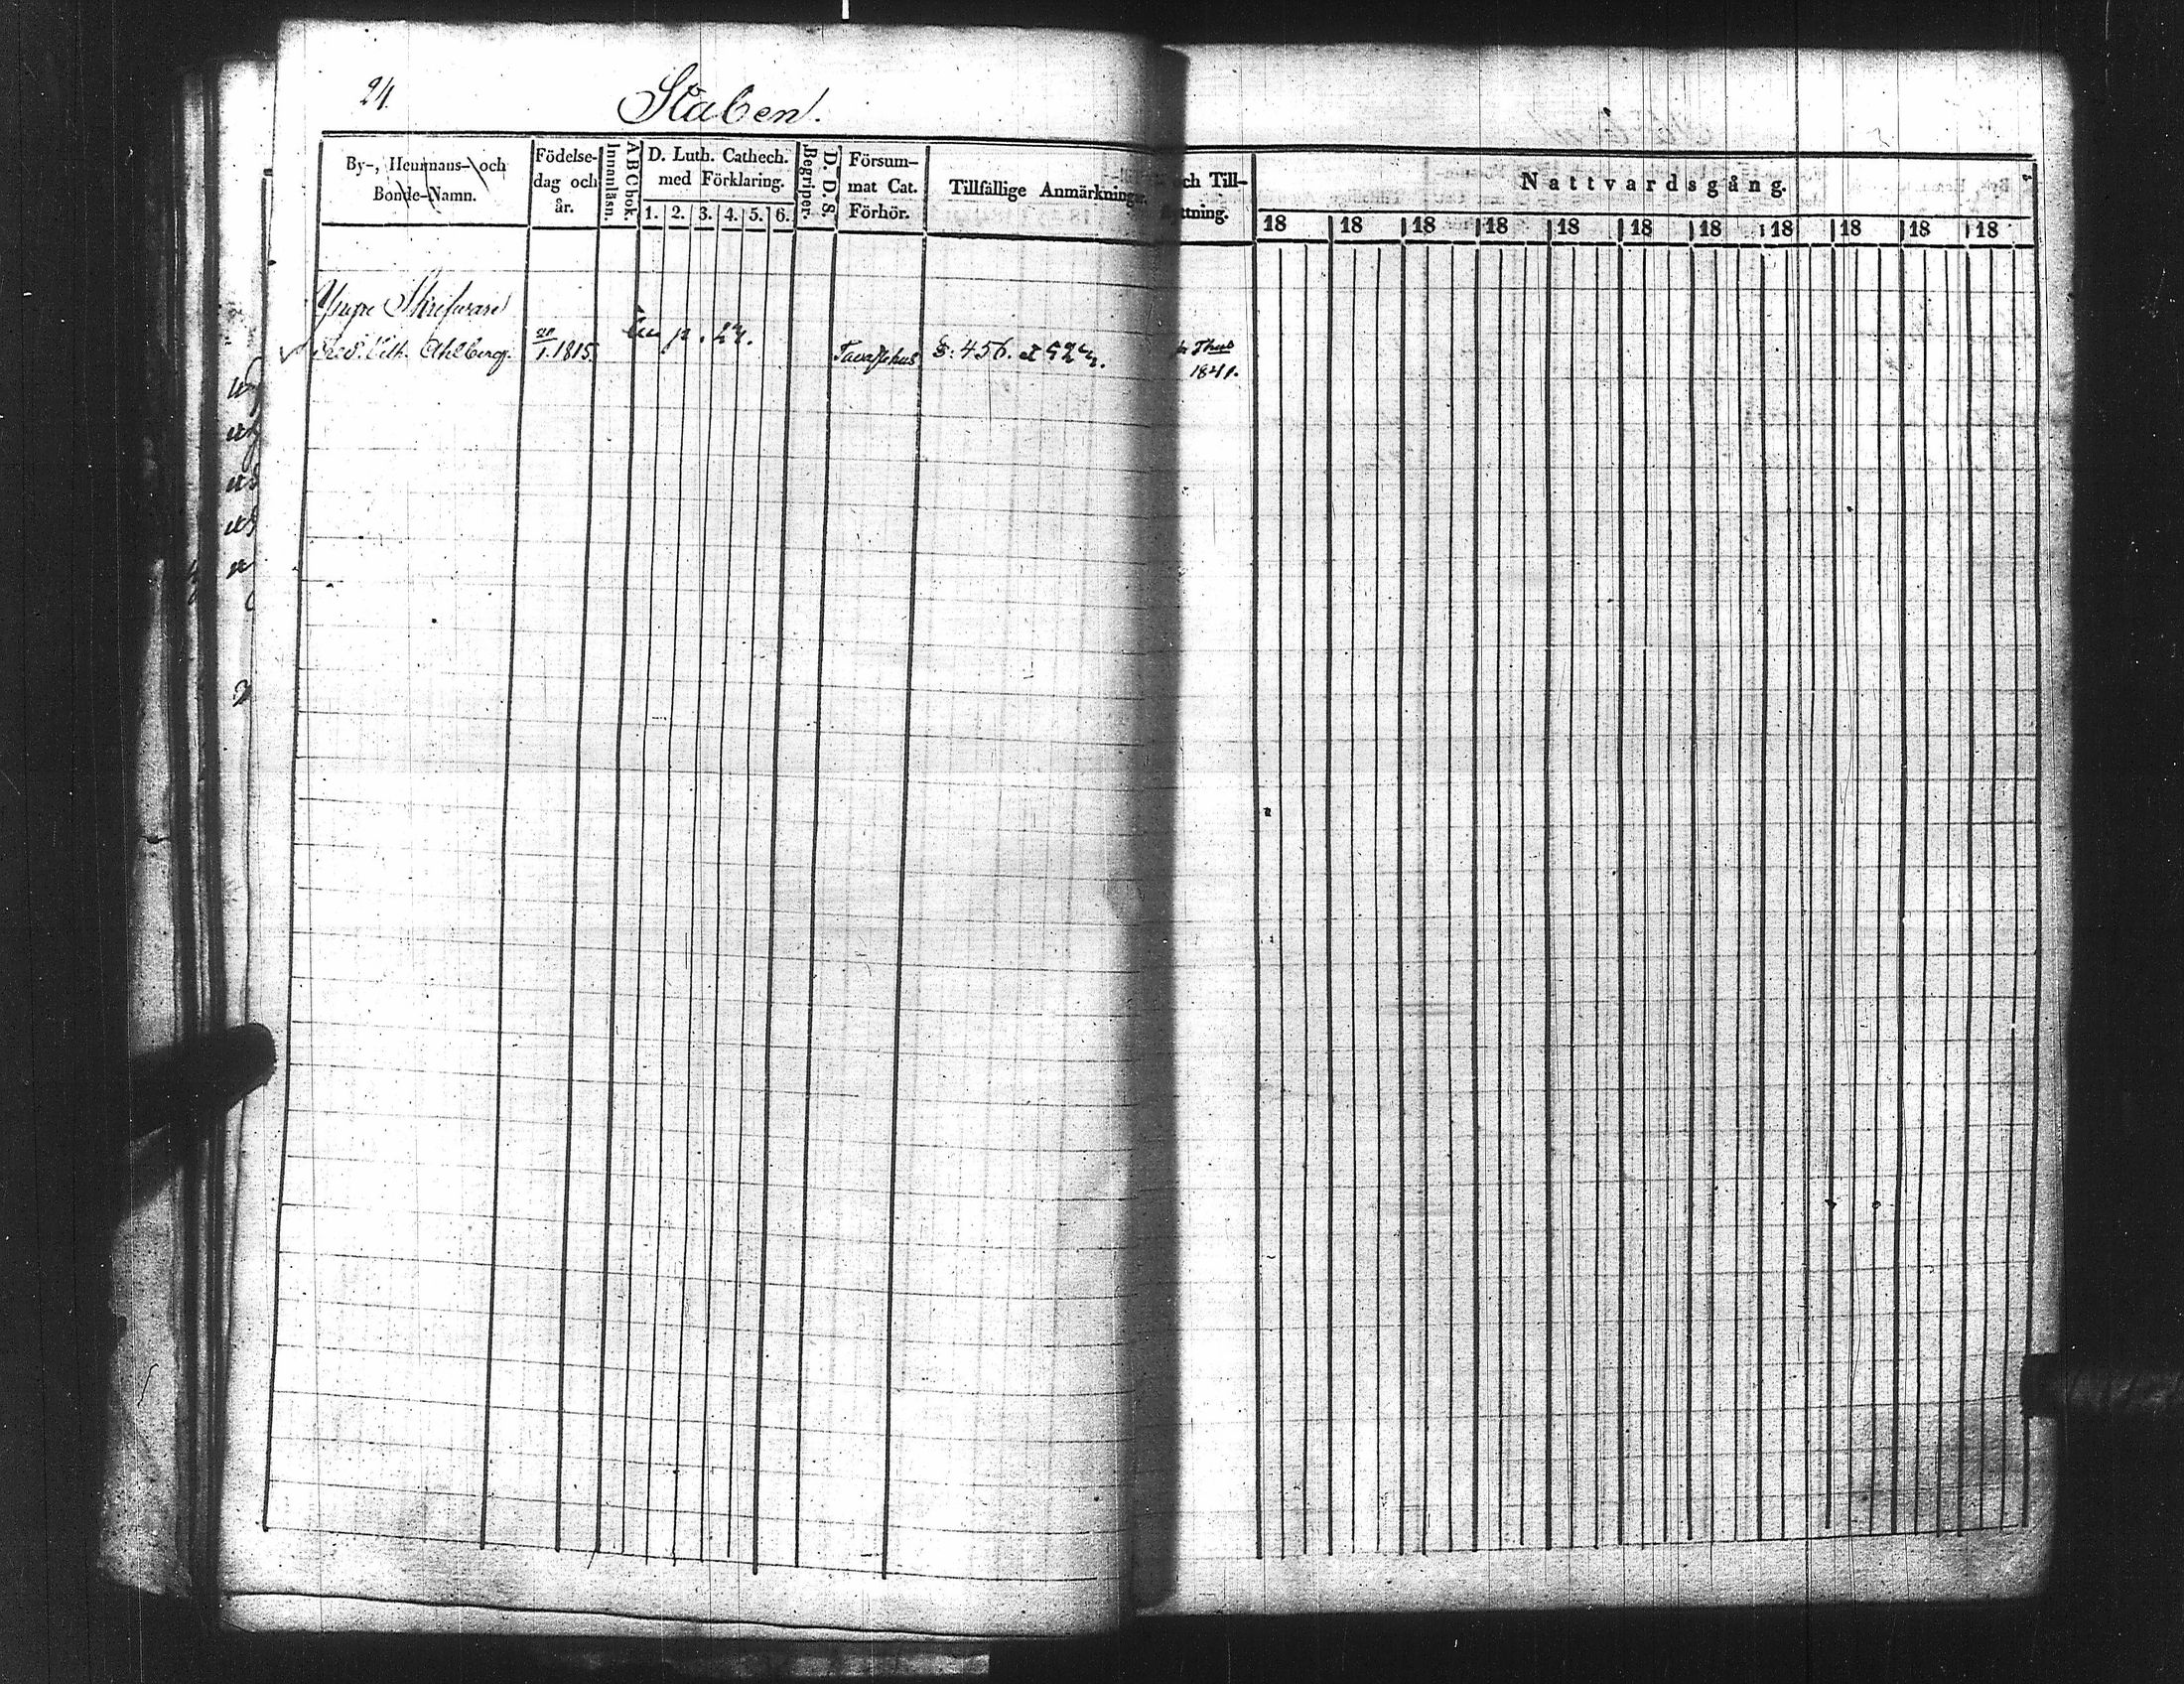 24.
Staben.
By-, Hemmans- och Bonde-Namn.
Födelse-dag och år.
Innanläsn.
ABC bok.
D. Luth. Cathech. med Förklaring.
1. 2. 3. 4. 5. 6.
Begriper.
D. D. S.
Försum-mat Cat. Förhör.
Tillfällige Anmärkningar
och Till-
flyttning.
Nattvardsgång.
18 18 18 18 18 18 18 18 18 18 18
Yngre Skrifvare
Fred. Vilh. Ahlberg. 1. 1815. p. 27. Tavastehus S: 456. Thus
1841.